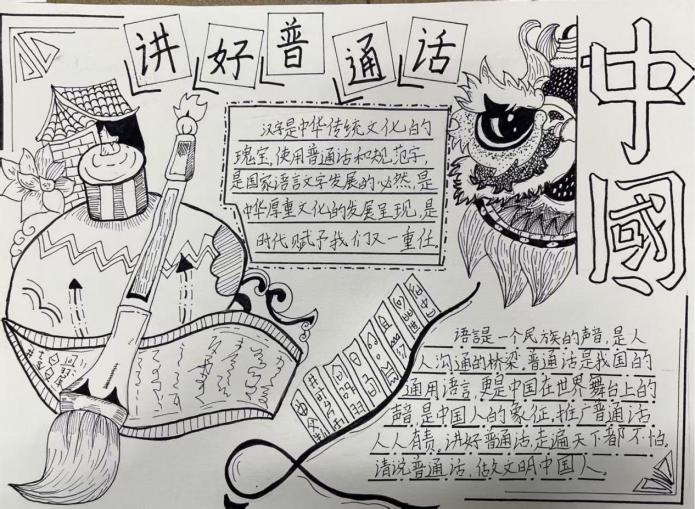 讲好普通话
中國
汉字是中华传统文化的
瑰宝,使用普通话和规范字,
是国家语言文字发展的必然,是
中华厚重文化的发展呈现,是
时代赋予我们又一重任.
语言是一个民族的声音,是人
人沟通的桥梁.普通话是我国的
通用语言,更是中国在世界舞台上的
声音,是中国人的象征,推广普通话
人人有责.讲好普通话,走遍天下都不怕.
请说普通话,做文明中国人.